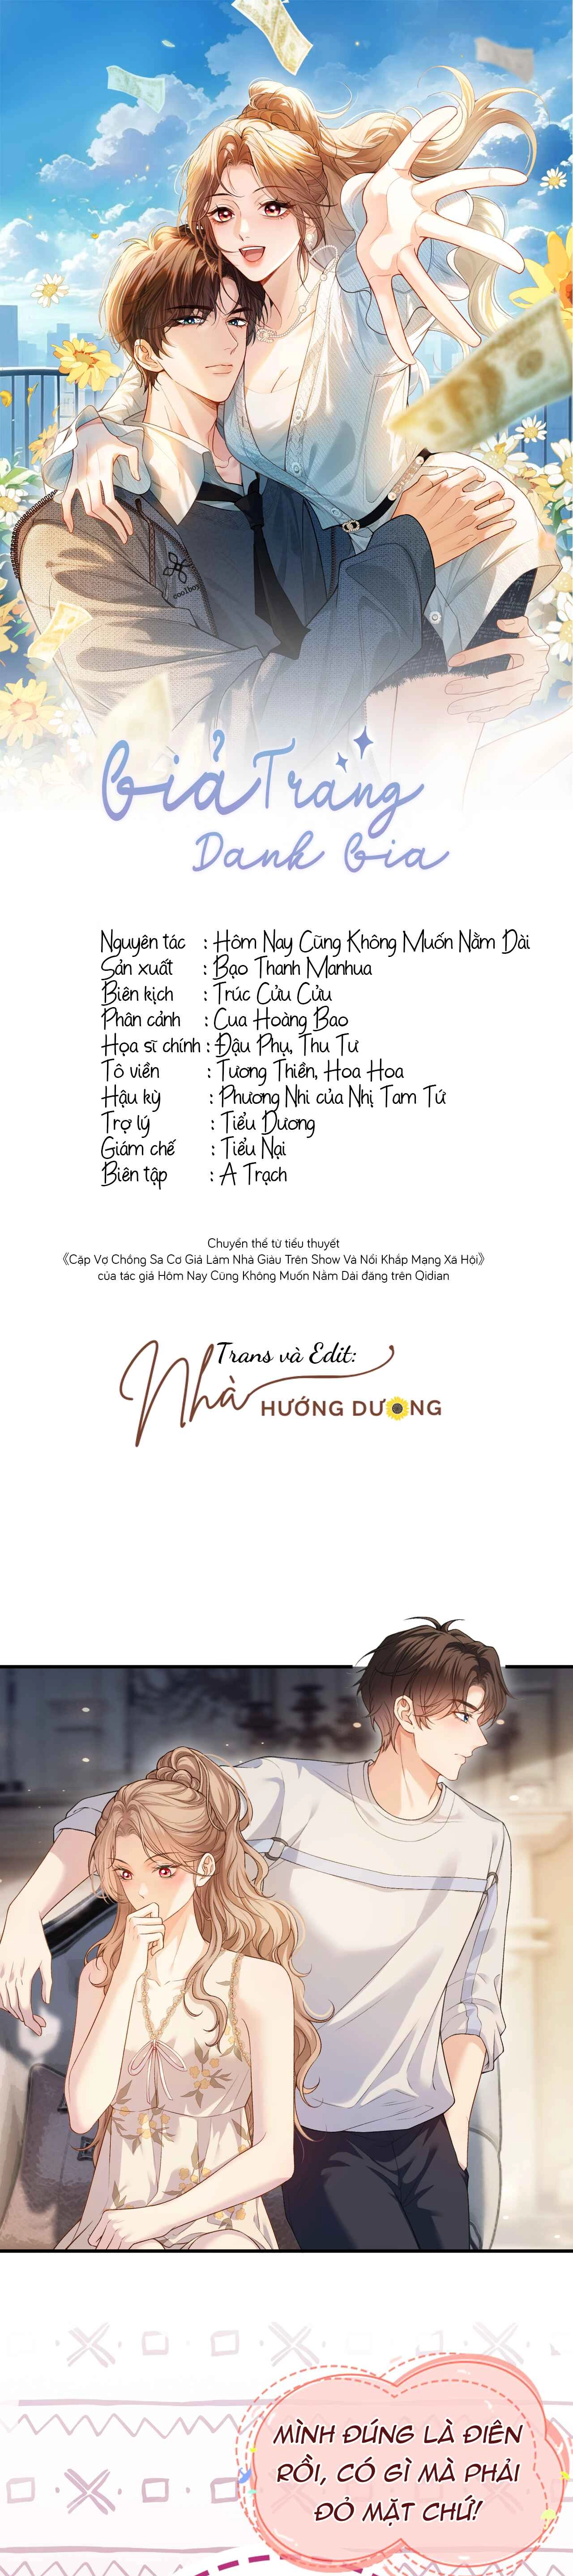 coolboy
Giả Trang
Danh Gia
Nguyên tác : Hôm Nay Cũng Không Muốn Nằm Dài
Sản xuất : Bạo Thanh Manhua
Biên kịch : Trúc Cửu Cửu
Phân cảnh : Cua Hoàng Bao
Họa sĩ chính : Đậu Phụ, Thu Tư
Tô viền : Tương Thiền, Hoa Hoa
Hậu kỳ : Phương Nhi của Nhị Tam Tứ
Trợ lý : Tiểu Dương
Giám chế : Tiểu Nại
Biên tập : A Trạch
Chuyển thể từ tiểu thuyết
《Cặp Vợ Chồng Sa Cơ Giả Làm Nhà Giàu Trên Show Và Nổi Khắp Mạng Xã Hội》
của tác giả Hôm Nay Cũng Không Muốn Nằm Dài đăng trên Qidian
Trans và Edit:
Nhà HƯỚNG DƯƠNG
MÌNH ĐÚNG LÀ ĐIÊN
RỒI, CÓ GÌ MÀ PHẢI
ĐỎ MẶT CHỨ!